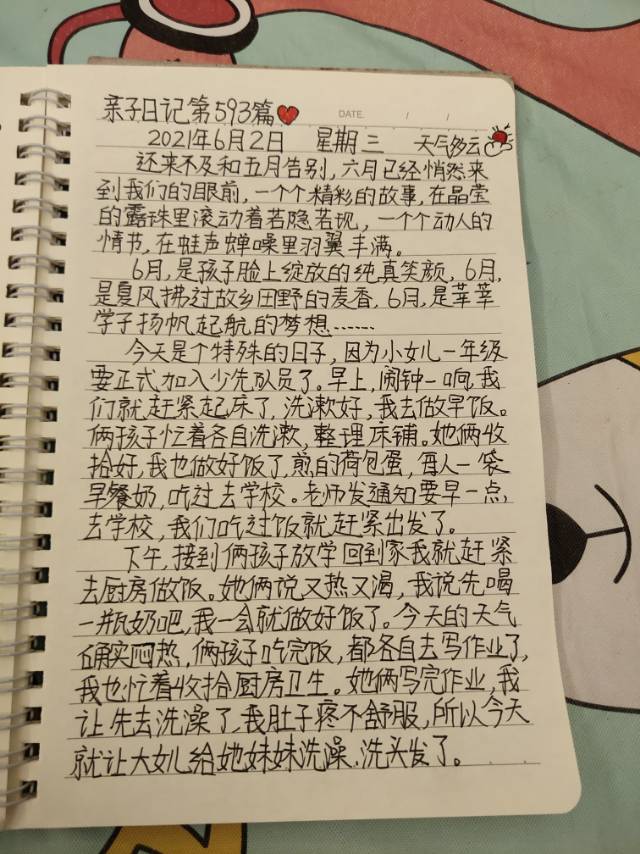 亲子日记第593篇
DATE. / /
2021年6月2日 星期三 天气多云
还来不及和五月告别,六月已经悄然来
到我们的眼前,一个个精彩的故事,在晶莹
的露珠里滚动着若隐若现,一个个动人的
情节,在蛙声蝉噪里羽翼丰满。
6月,是孩子脸上绽放的纯真笑颜,6月,
是夏风拂过故乡田野的麦香,6月,是莘莘
学子扬帆起航的梦想……
今天是个特殊的日子,因为小女儿一年级
要正式加入少先队员了。早上,闹钟一响,我
们就赶紧起床了,洗漱好,我去做早饭。
俩孩子忙着各自洗漱,整理床铺。她俩收
拾好,我也做好饭了,煎的荷包蛋,每人一袋
早餐奶,吃过去学校。老师发通知要早一点
去学校,我们吃过饭就赶紧出发了。
下午,接到俩孩子放学回到家我就赶紧
去厨房做饭。她俩说又热又渴,我说先喝
一瓶奶吧,我一会就做好饭了。今天的天气
确实闷热,俩孩子吃完饭,都各自去写作业了,
我也忙着收拾厨房卫生。她俩写完作业,我
让先去洗澡了,我肚子疼不舒服,所以今天
就让大女儿给她妹妹洗澡.洗头发了。